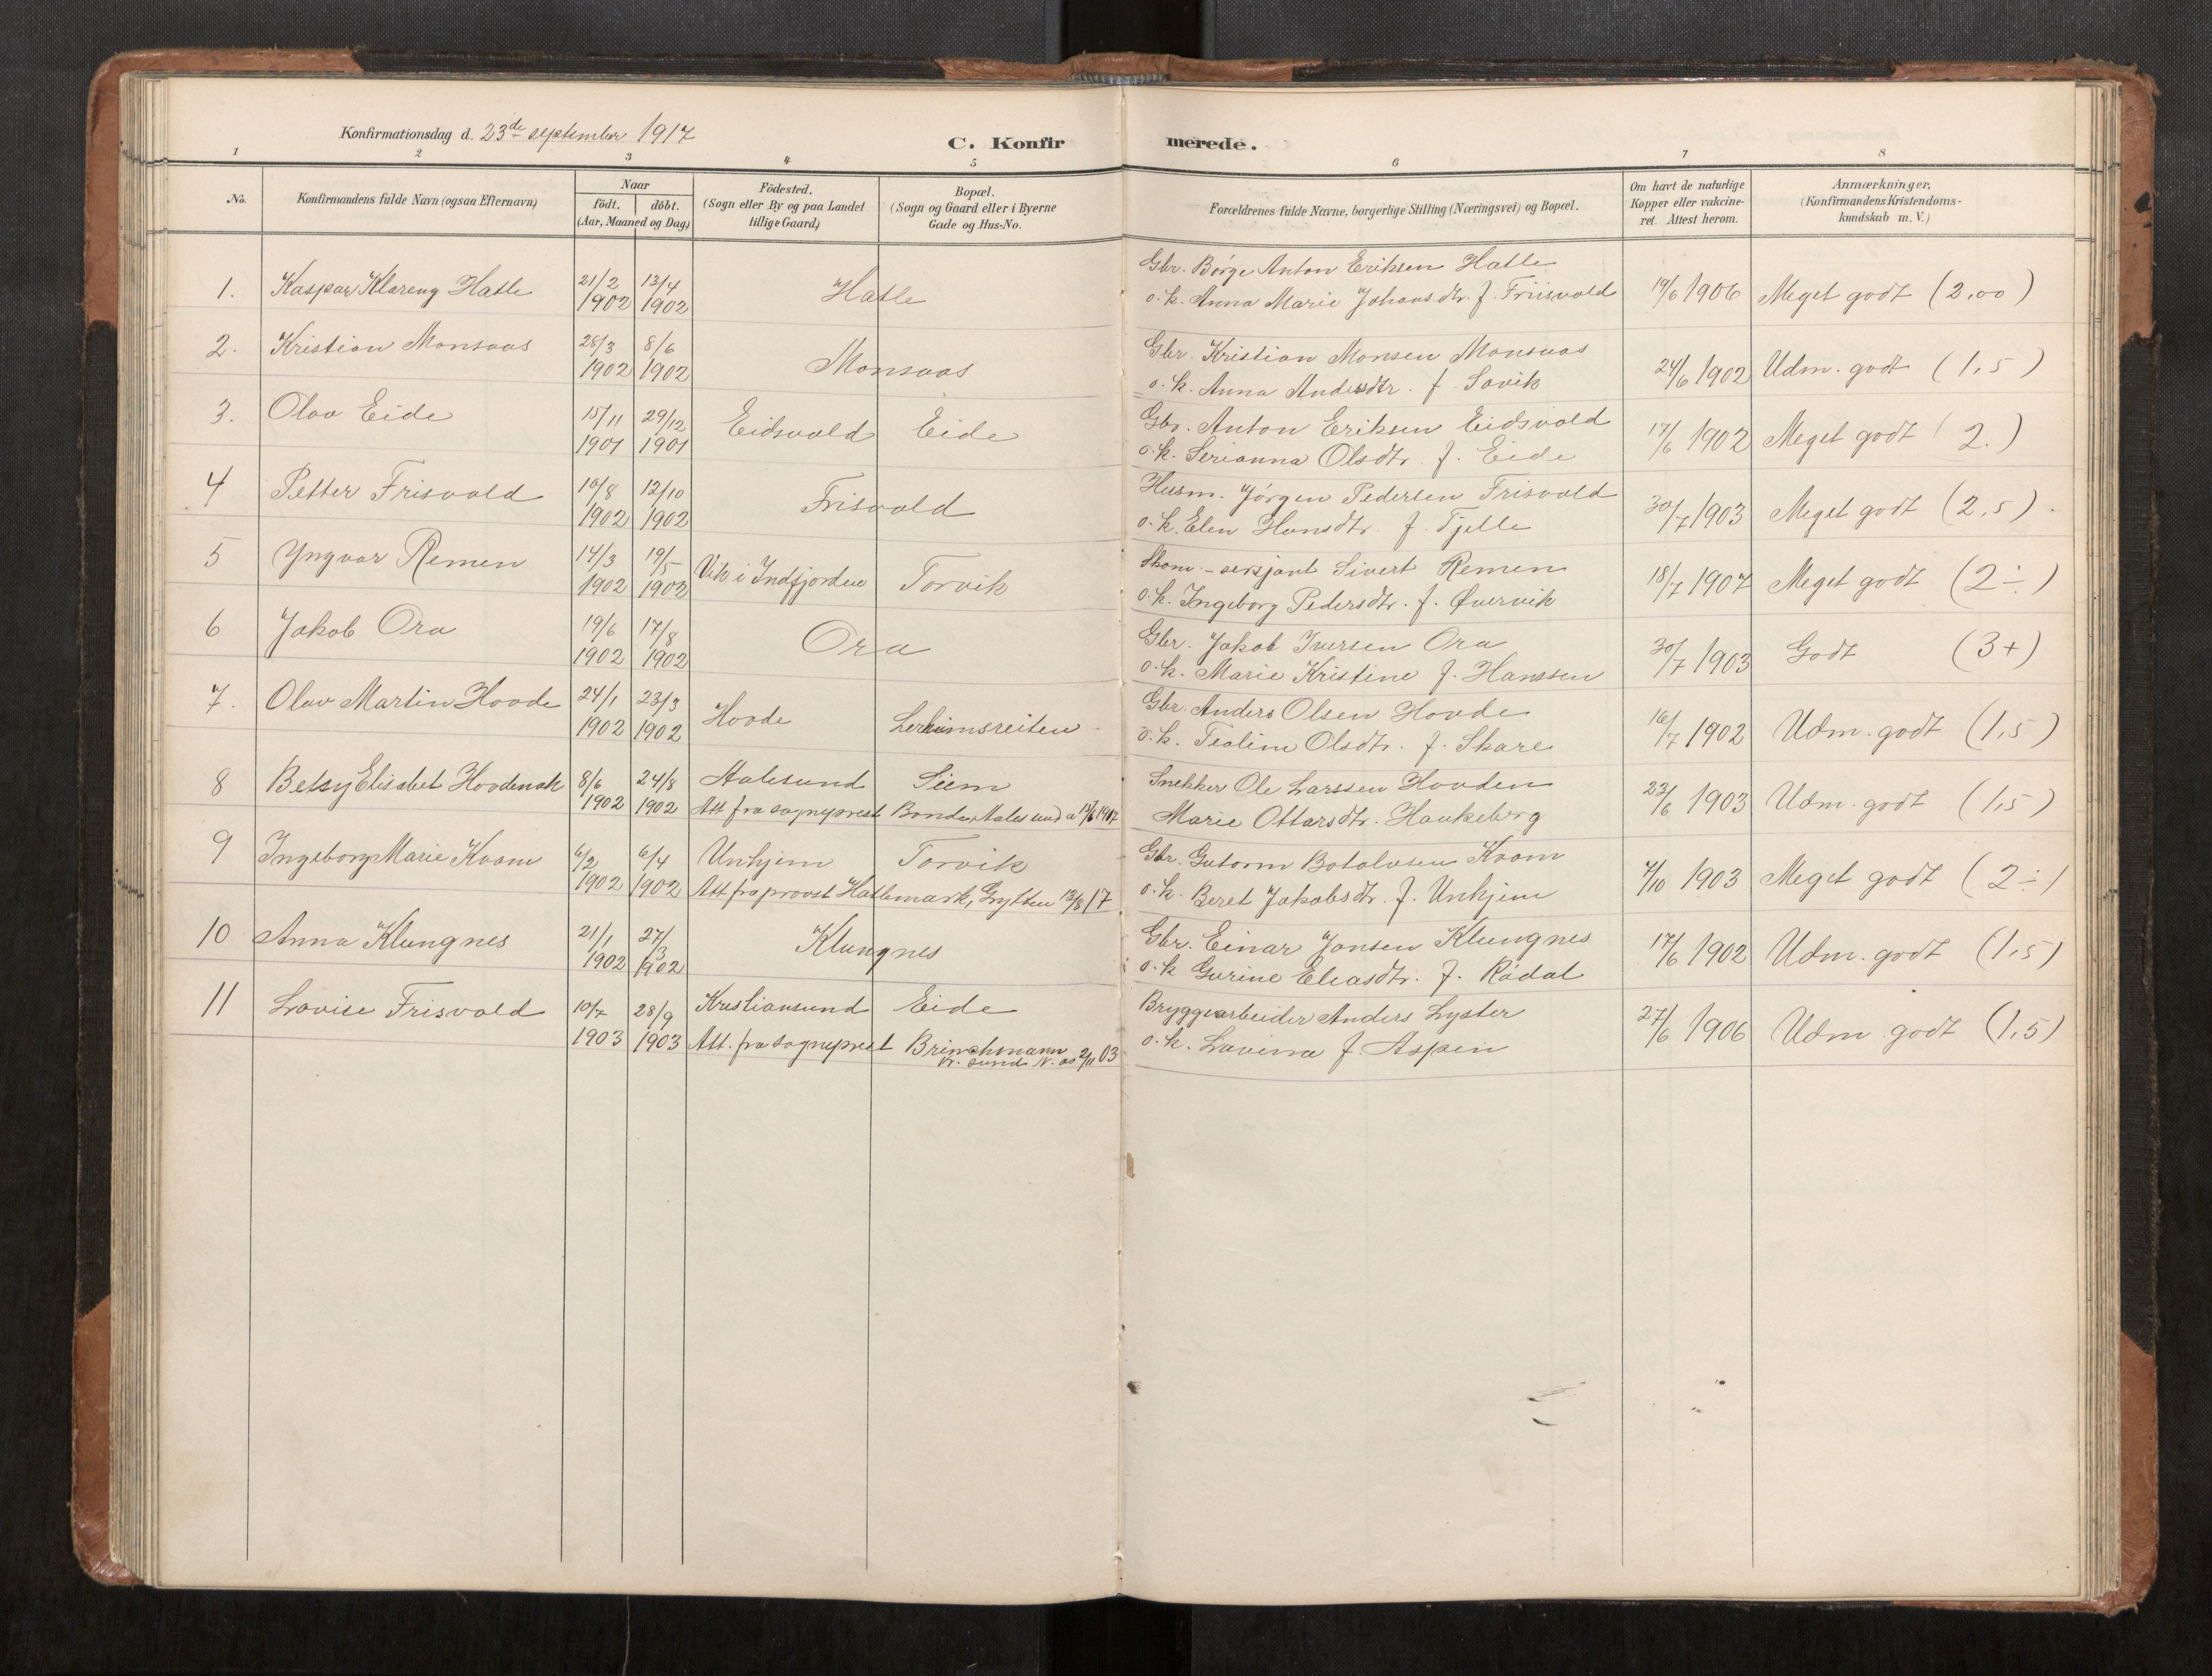 Konfirmationsdag d. 23de september 1917
C. Konfirmerede.
1 2 3 4 5 6 7 8
No.
Konfirmandens fulde Navn (ogsaa Efternavn)
Naar
födt. döbt.
(Aar, Maaned og Dag)
Födested.
(Sogn eller By og paa Landet
tillige Gaard)
Bopæl.
(Sogn og Gaard eller i Byerne
Gade og Hus-No.
Forældrenes fulde Navne, borgerlige Stilling (Næringsvei) og Bopæl.
Om havt de naturlige
Kopper eller vakcine-
ret. Attest herom.
Anmærkninger.
(Konfirmandens Kristendoms-
kundskab m. V.)
1. Kaspar Klareng Hatle 21/2 1902 13/4 1902 Hatle
Gbr. Börge Anton Eriksen Hatle
o. k. Anna Marie Johansdtr. f. Friisvold 19/6 1906 Meget godt (2,00)
2. Kristian Monsaas 28/3 1902 8/6 1902 Monsaas
Gbr. Kristian Monsen Monsaas
o. k. Anna Andersdtr. f. Sovik 24/6 1902 Udm. godt (1,5)
3. Olav Eide 15/11 1901 29/12 1901 Eidsvold Eide
Gbr. Anton Eriksen Eidsvold
o. k. Serianna Olsdtr. f. Eide 17/6 1902 Meget godt (2.)
4 Petter Frisvold 10/8 1902 12/10 1902 Frisvold
Husm. Jörgen Pedersen Frisvold
o. k. Elen Hansdtr. f. Tjelle 30/7 1903 Meget godt (2,5).
5 Yngvar Remen 14/3 1902 19/5 1902 Vik i Indfjorden Torvik
Skom.-sersjant Sivert Remen
o. k. Ingeborg Pedersdtr. f. Øvervik 18/7 1907 Meget godt (2÷)
6 Jakob Ora 19/6 1902 17/8 1902 Ora
Gbr. Jakob Iversen Ora
o. k. Marie Kristine f. Hanssen 30/7 1903 Godt (3+)
7. Olav Martin Hovde 24/1 1902 23/3 1902 Hovde Lerheimsreiten
Gbr. Anders Olsen Hovde
o. k. Teoline Olsdtr. f. Skare 16/7 1902 Udm. godt (1,5)
8 Betsy Elisabet Hovdenak 8/6 1902 24/8 1902 Aalesund Siem
Att fra sogneprest Bonde, Aalesund 1917
Snekker Ole Larssen Hovden
Marie Ottarsdtr. Haukeberg 23/6 1903 Udm. godt (1,5)
9 Ingeborg Marie Kvam 6/2 1902 6/4 1902 Unhjem Torvik
Att fra provst Hatlemark, Grytten 13/8 17
Gbr. Gutorm Botolvsen Kvam
o. k. Beret Jakobsdtr. f. Unhjem 7/10 1903 Meget godt (2÷)
10 Anna Klungnes 21/1 1902 27/3 1902 Klungnes
Gbr. Einar Jonsen Klungnes
o. k. Gurine Eliasdtr. f. Rödal 17/6 1902 Udm. godt (1,5)
11 Lovise Frisvold 10/7 1903 28/9 1903 Kristiansund Eide
Att. fra sogneprest Brinchmann
Kr. sund N. 2/11 03
Bryggearbeider Anders Lyster
o. k. Lavina f. Aspen 27/6 1906 Udm. godt (1,5)